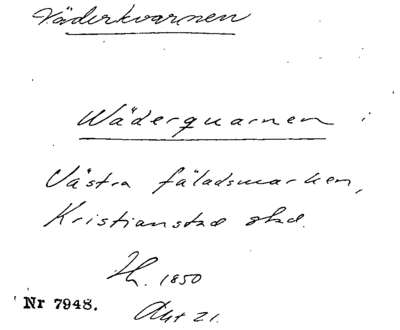 Väderkvarnen
Wäderquarnen i
Västra fäladsmarken,
Kristianstad stad.
Hl. 1850
Nr 7948.
Akt 21.